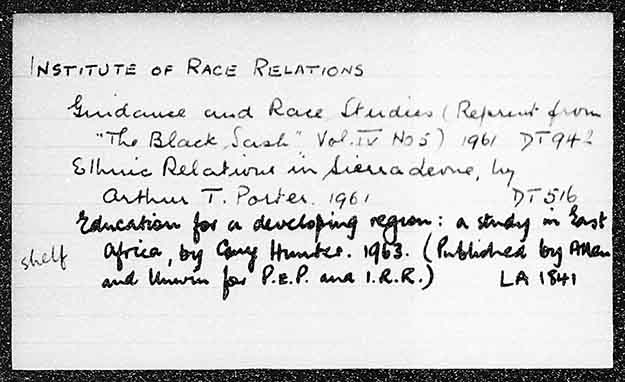 INSTITUTE OF RACE RELATIONS
Guidance and Race Studies (Reprint from
"The Black Sash" Vol. IV No 5) 1961 DT 942
Ethnic Relations in Sierra Leone, by
Arthur T. Porter. 1961 DT 516
Education for a developing region: a study in East
shelf Africa, by Guy Hunter. 1963. (Published by Allen
and Unwin for P.E.P. and I.R.R.) LA 1841